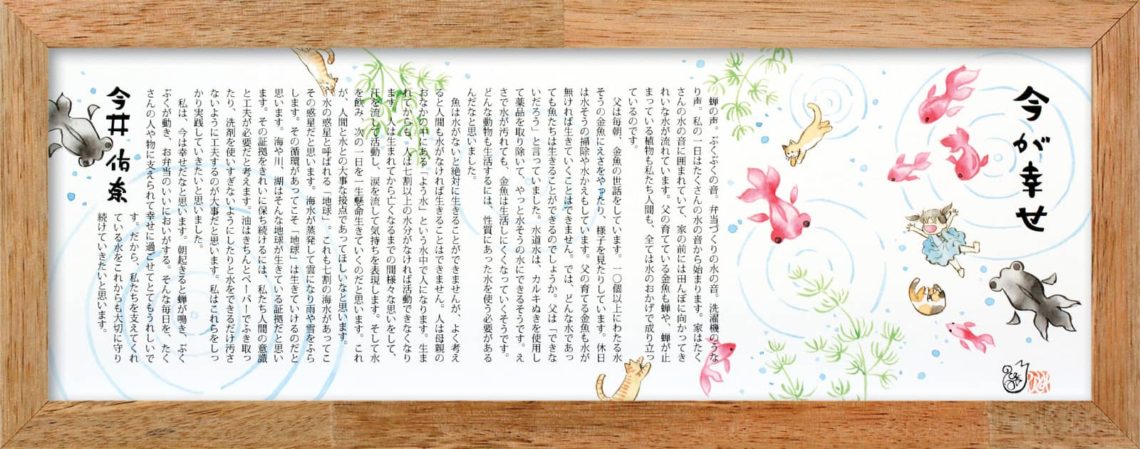 今が幸せ
蝉の声。ぶくぶくの音。弁当づくりの水の音。洗濯機のうな
り声。私の一日はたくさんの水の音から始まります。家はたく
さんの水の音に囲まれていて、家の前には田んぼに向かってき
れいな水が流れています。父の育てている金魚も蝉や、蝉が止
まっている植物も私たち人間も、全ては水のおかげで成り立っ
ているのです。
父は毎朝、金魚の世話をしています。一〇個以上にわたる水
そうの金魚にえさをやったり、様子を見たりしています。休日
は水そうの掃除や水かえもしています。父の育てる金魚も水が
無ければ生きていくことはできません。では、どんな水であっ
ても魚たちは生きることができるのでしょうか。父は「できな
いだろう」と言っていました。水道水は、カルキぬきを使用し
て薬品を取り除いて、やっと水そうの水にできるそうです。え
さで水が汚れても、金魚は生活しにくくなっていくそうです。
どんな動物も生活するには、性質にあった水を使う必要がある
んだなと思いました。
魚は水がないと絶対に生きることができませんが、よく考え
ると人間も水がなければ生きることはできません。人は母親の
おなかの中にある「よう水」という水中で人になります。生ま
れてからも、人は七割以上の水分がなければ活動できなくなり
ます。人は生まれてから亡くなるまでの間様々な思いをして、
汗を流して活動し、涙を流して気持ちを表現します。そして水
を飲み、次の一日を一生懸命生きていくのだと思います。これ
が、人間と水との大事な接点であってほしいなと思います。
水の惑星と呼ばれる「地球」。これも七割の海水があってこ
その惑星だと思います。海水が蒸発して雲になり雨や雪をふら
します。その循環があってこそ「地球」は生きていけるのだと
思います。海や川、湖はそんな地球が生きている証拠だと思い
ます。その証拠をきれいに保ち続けるには、私たち人間の意識
と工夫が必要だと考えます。油はきちんとペーパーでふき取っ
たり、洗剤を使いすぎないようにしたりと水をできるだけ汚さ
ないように工夫するのが大事だと思います。私はこれらをしっ
かり実践していきたいと思いました。
私は、今は幸せだなと思います。朝起きると蝉が鳴き、ぶく
ぶくが動き、お弁当のいいにおいがする。そんな毎日を、たく
さんの人や物に支えられて幸せに過ごせてとてもうれしいで
す。だから、私たちを支えてくれ
ている水をこれからも大切に守り
続けていきたいと思います。
今井 佑奈